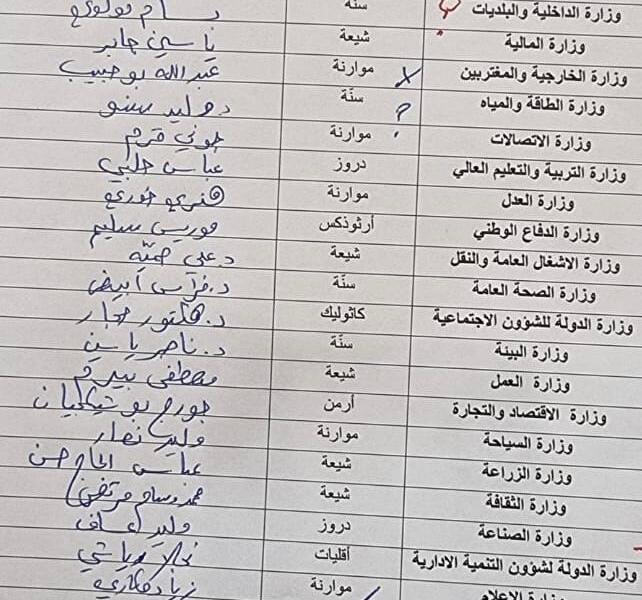 وزارة الداخلية والبلديات سنة بسام مولوي
وزارة المالية شيعة ياسين جابر
وزارة الخارجية والمغتربين موارنة عبدالله بو حبيب
وزارة الطاقة والمياه سنّة د. وليد سنو
وزارة الاتصالات موارنة جوني قرم
وزارة التربية والتعليم العالي دروز عباس حلبي
وزارة العدل موارنة هنري خوري
وزارة الدفاع الوطني أرثوذكس موريس سليم
وزارة الاشغال العامة والنقل شيعة د. علي حميّة
وزارة الصحة العامة سنّة د. فراس أبيض
وزارة الدولة للشؤون الاجتماعية كاثوليك د. هكتور حجار
وزارة البيئة سنّة د. ناصر ياسين
وزارة العمل شيعة مصطفى بيرم
وزارة الاقتصاد والتجارة أرمن جورج بوشكيان
وزارة السياحة موارنة وليد نصار
وزارة الزراعة شيعة عباس الحاج حسن
وزارة الثقافة شيعة محمد وسام مرتضى
وزارة الصناعة دروز وليد عساف
وزارة الدولة لشؤون التنمية الادارية أقليات نجلا رياشي
وزارة الاعلام موارنة زياد مكاري